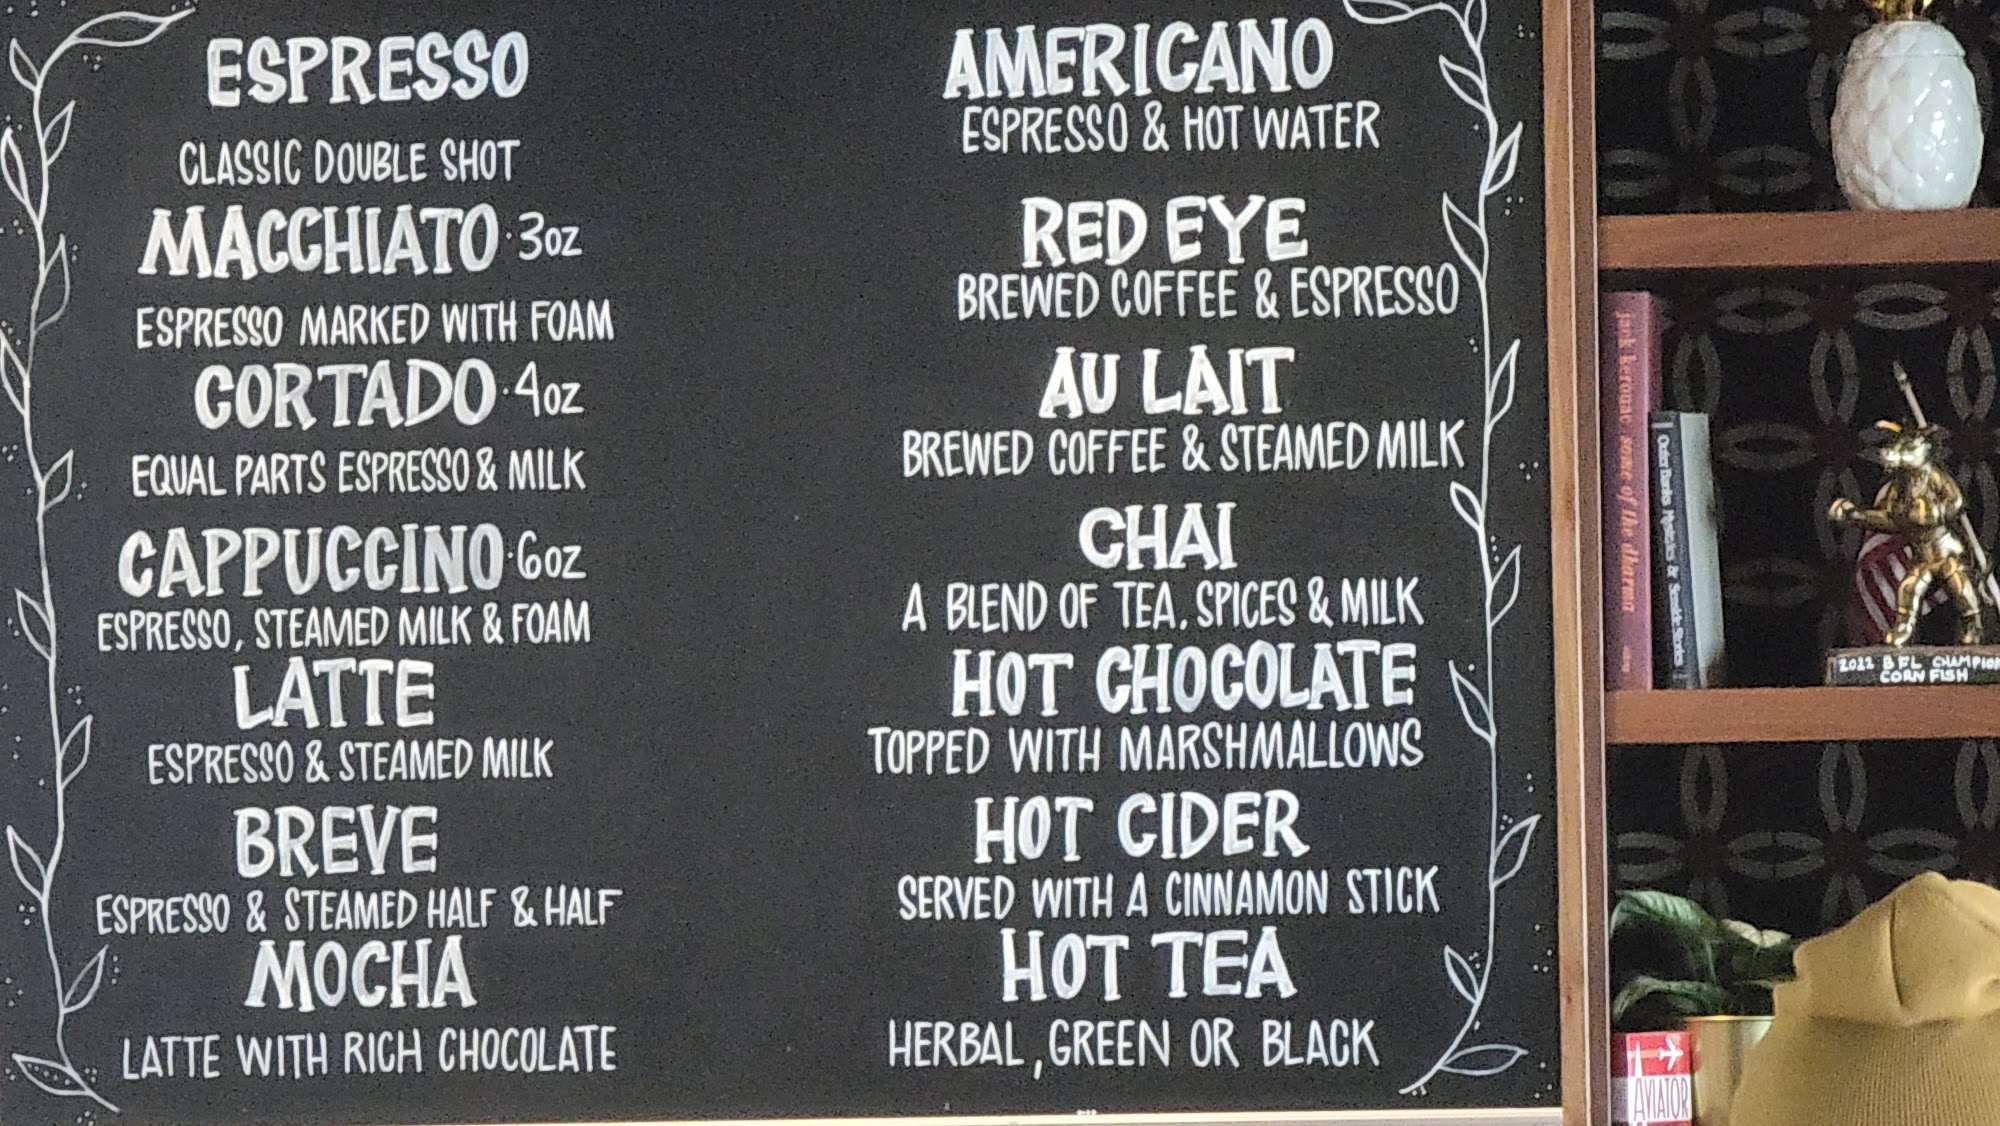 ESPRESSO
CLASSIC DOUBLE SHOT
MACCHIATO · 3oz
ESPRESSO MARKED WITH FOAM
CORTADO · 4oz
EQUAL PARTS ESPRESSO & MILK
CAPPUCCINO · 6oz
ESPRESSO, STEAMED MILK & FOAM
LATTE
ESPRESSO & STEAMED MILK
BREVE
ESPRESSO & STEAMED HALF & HALF
MOCHA
LATTE WITH RICH CHOCOLATE
AMERICANO
ESPRESSO & HOT WATER
RED EYE
BREWED COFFEE & ESPRESSO
AU LAIT
BREWED COFFEE & STEAMED MILK
CHAI
A BLEND OF TEA, SPICES & MILK
HOT CHOCOLATE
TOPPED WITH MARSHMALLOWS
HOT CIDER
SERVED WITH A CINNAMON STICK
HOT TEA
HERBAL, GREEN OR BLACK
jack kerouac some of the dharma
Outer Banks Mysteries & Seaside Stories
2022 BFL CHAMPION
CORN FISH
AVIATOR